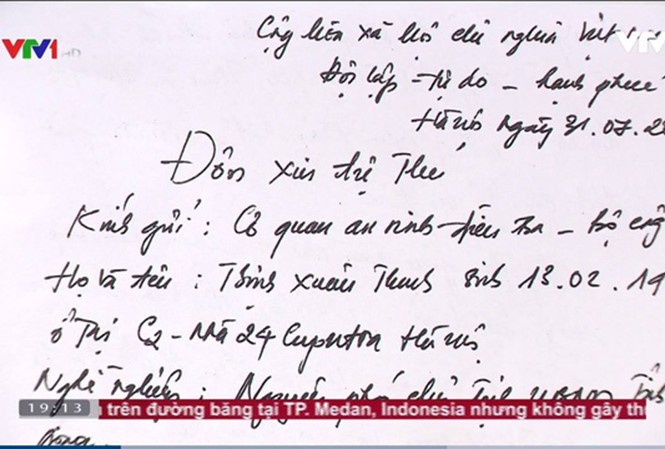 VTV1
VTV
Cộng hòa xã hội chủ nghĩa Việt
Độc lập - tự do - hạnh phúc
Hà nội ngày 31.07.2
Đơn xin tự thú
Kính gửi : Cơ quan an ninh điều tra - Bộ công
Họ và tên : Trịnh Xuân Thanh sinh 13.02.19
ở tại C2 - nhà 24 Ciputra Hà nội
Nghề nghiệp : Nguyên phó chủ tịch UBND tỉnh
19:13 trên đường băng tại TP. Medan, Indonesia nhưng không gây th